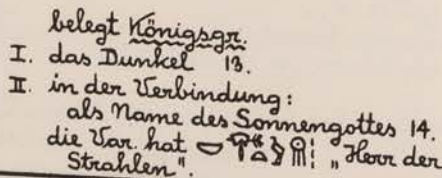 belegt Königsgr.
I. das Dunkel 13.
II. in der Verbindung:
als Name des Sonnengottes 14.
die Var. hat „Herr der
Strahlen".